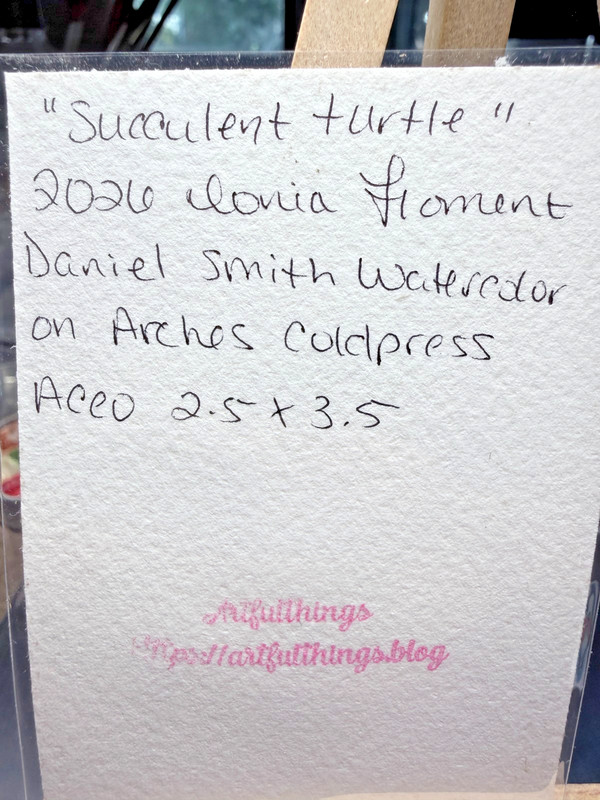 "Succulent turtle"
2026 Ilonia Froment
Daniel Smith Watercolor
on Arches Coldpress
ACEO 2.5 x 3.5
Artfulthings
https://artfulthings.blog